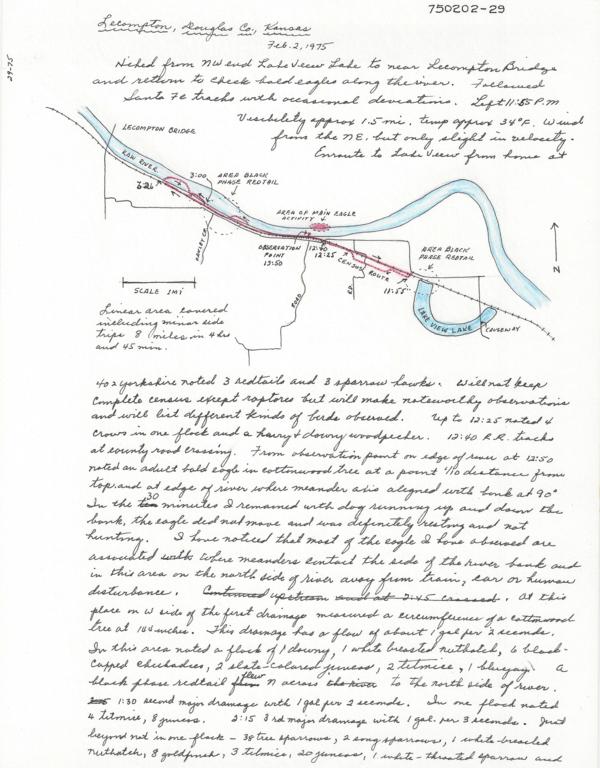 750202-29
29-75
Lecompton, Douglas Co, Kansas
Feb. 2, 1975
Hiked from NW end Lake View Lake to near Lecompton Bridge
and return to check bald eagles along the river. Followed
Santa Fe tracks with occasional deviations. Left 11:55 P.M
Visibility approx 1.5 mi. temp approx 34°F. Wind
from the NE, but only slight in velocity.
Enroute to Lake View from home at
LECOMPTON BRIDGE
KAW RIVER
3:00
AREA BLACK
PHASE REDTAIL
AREA OF MAIN EAGLE
ACTIVITY
OBSERVATION
POINT
12:50
12:40
12:25
CENSUS ROUTE
11:55
AREA BLACK
PHASE REDTAIL
ROAD
RD.
LAKE VIEW LAKE
CAUSEWAY
N
SCALE 1 MI
Linear area covered
including minor side
trips 8 miles in 4 hrs
and 45 min.
402 Yorkshire noted 3 redtails and 3 sparrow hawks. Will not keep
complete census except raptores but will make noteworthy observations
and will list different kinds of birds observed. Up to 12:25 noted 4
crows in one flock and a hairy & downy woodpecker. 12:40 R.R. tracks
at county road crossing. From observation point on edge of river at 12:50
noted an adult bald eagle in cottonwood tree at a point 1/10 distance from
top and at edge of river where meander axis aligned with bank at 90°
In the 30 minutes I remained with dog running up and down the
bank, the eagle did not move and was definitely resting and not
hunting. I have noticed that most of the eagle I have observed are
associated with where meanders contact the side of the river bank and
in this area on the north side of river away from train, car or human
disturbance. Continued upstream and at 2:45 crossed. At this
place on W side of the first drainage measured a circumference of a cottonwood
tree at 144 inches. This drainage has a flow of about 1 gal per 2 seconds.
In this area noted a flock of 1 downy, 1 white breasted nuthatch, 6 black-
capped chickadies, 2 slate-colored juncos, 2 titmice, 1 bluejay. A
black phase redtail flew N across the river to the north side of river.
1:30 second major drainage with 1 gal per 2 seconds. In one flock noted
4 titmice, 8 juncos. 2:15 3rd major drainage with 1 gal. per 3 seconds. Just
beyond not in one flock - 38 tree sparrows, 2 song sparrows, 1 white-breasted
nuthatch, 8 goldfinch, 3 titmice, 20 juncos, 1 white-throated sparrow and